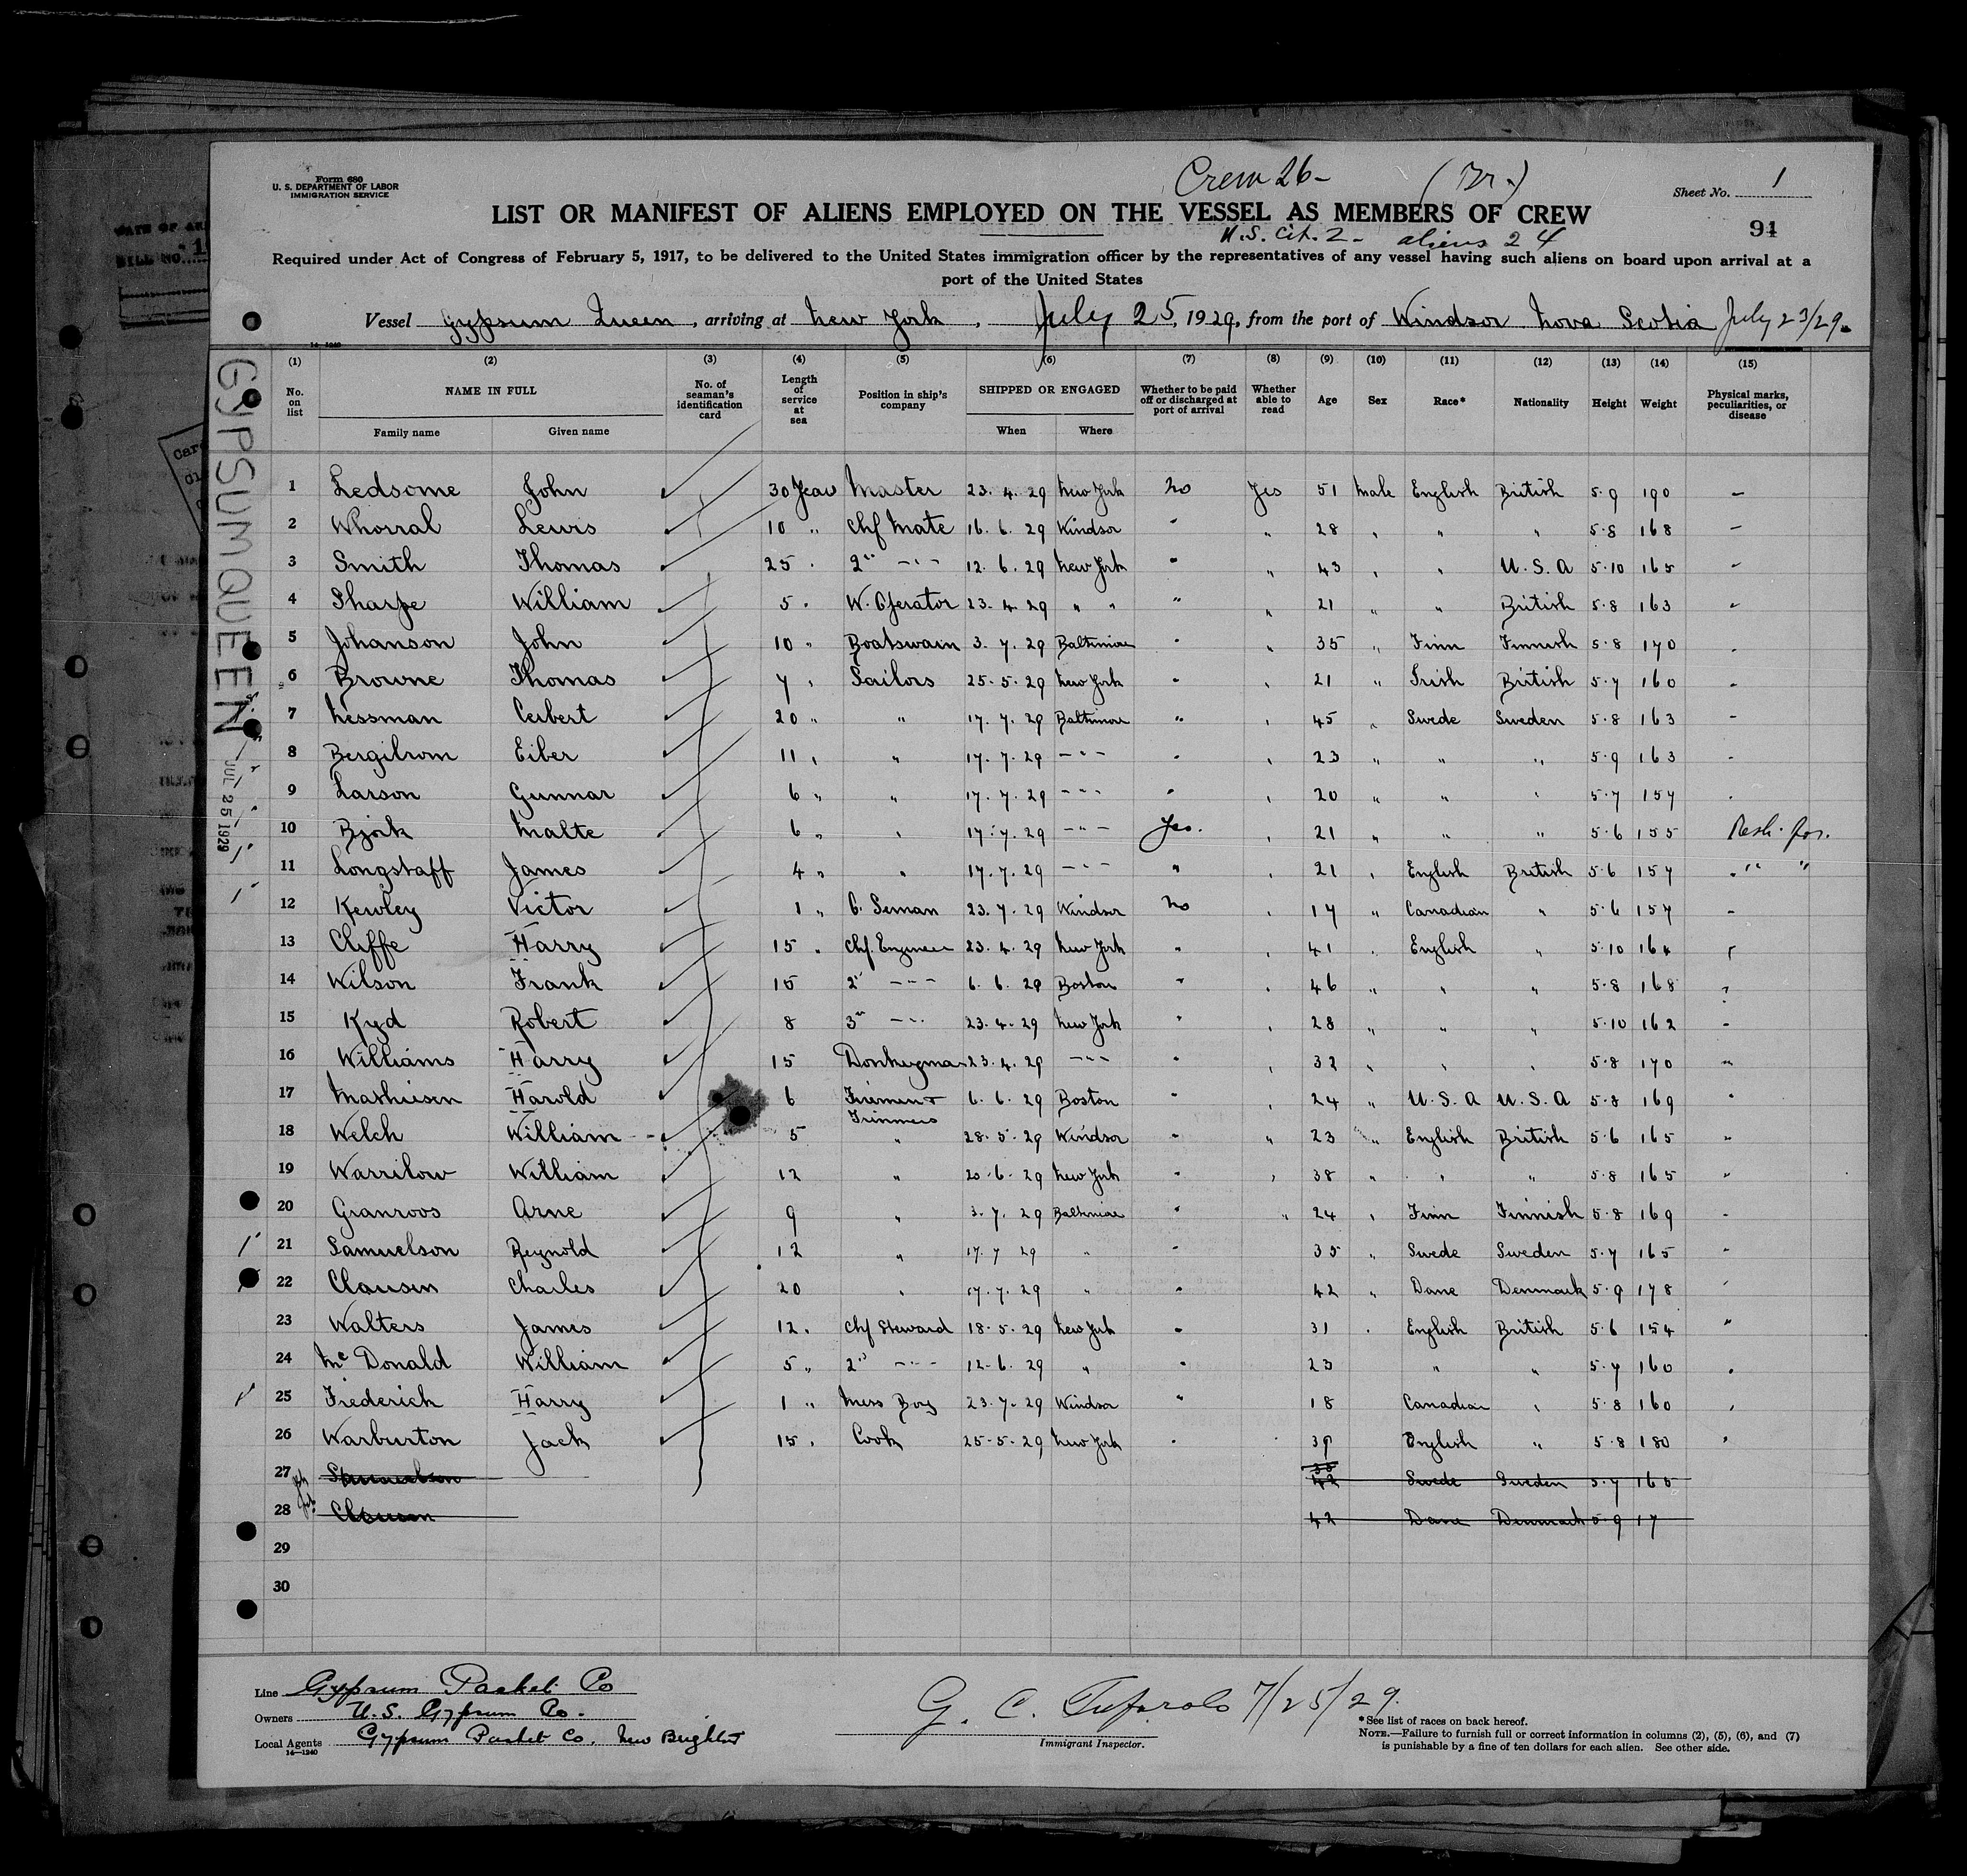 Form 680
U. S. DEPARTMENT OF LABOR
IMMIGRATION SERVICE
Crew 26- (Br.)
Sheet No. 1
LIST OR MANIFEST OF ALIENS EMPLOYED ON THE VESSEL AS MEMBERS OF CREW
94
U.S. Cit. 2- aliens 24
Required under Act of Congress of February 5, 1917, to be delivered to the United States immigration officer by the representatives of any vessel having such aliens on board upon arrival at a
port of the United States
Vessel Gypsum Queen, arriving at New York, July 25, 1929, from the port of Windsor Nova Scotia July 23/29
14-1240
(1) (2) (3) (4) (5) (6) (7) (8) (9) (10) (11) (12) (13) (14) (15)
No. on list NAME IN FULL Family name Given name No. of seaman's identification card Length of service at sea Position in ship's company SHIPPED OR ENGAGED When Where Whether to be paid off or discharged at port of arrival Whether able to read Age Sex Race* Nationality Height Weight Physical marks, peculiarities, or disease
GYPSUM QUEEN
JUL 25 1929
1 Ledsome John 30 Years Master 23. 4. 29 New York No Yes 51 Male English British 5.9 190 -
2 Whorral Lewis 10 " Chf Mate 16. 6. 29 Windsor " " 28 " " " 5.8 168 -
3 Smith Thomas 25 " 2nd -"- 12. 6. 29 New York " " 43 " " U.S.A 5.10 165 -
4 Sharpe William 5 " W. Operator 23. 4. 29 " " " " 21 " " British 5.8 163 -
5 Johanson John 10 " Boatswain 3. 7. 29 Baltimore " " 35 " Finn Finnish 5.8 170 -
6 Browne Thomas 7 " Sailors 25. 5. 29 New York " " 21 " Irish British 5.7 160 -
7 Nessman Cerbert 20 " " 17. 7. 29 Baltimore " " 45 " Swede Sweden 5.8 163 -
8 Bergilrom Eiber 11 " " 17. 7. 29 -"- " " 23 " " " 5.9 163 -
9 Larson Gunnar 6 " " 17. 7. 29 -"- " " 20 " " " 5.7 157 -
10 Bjork Malte 6 " " 17. 7. 29 -"- Yes. " 21 " " " 5.6 155
11 Longstaff James 4 " " 17. 7. 29 -"- " " 21 " English British 5.6 157 " "
12 Kewley Victor 1 " O. Seman 23. 7. 29 Windsor No " 17 " Canadian " 5.6 157 -
13 Cliffe Harry 15 " Chf. Engineer 23. 4. 29 New York " " 41 " English " 5.10 164
14 Wilson Frank 15 2" -"- 6. 6. 29 Boston " " 46 " " " 5.8 168
15 Kyd Robert 8 3rd -"- 23. 4. 29 New York " " 28 " " " 5.10 162 -
16 Williams Harry 15 Donkeyman 23. 4. 29 -"- " " 32 " " " 5.8 170 "
17 Mathiesen Harold 6 Firemen & Trimmers 6. 6. 29 Boston " " 24 " U.S.A U.S.A 5.8 169 "
18 Welch William 5 " 28. 5. 29 Windsor " " 23 " English British 5.6 165 "
19 Warrilow William 12 " 20. 6. 29 New York " " 38 " " " 5.8 165 "
20 Granroos Arne 9 " 3. 7. 29 Baltimore " " 24 " Finn Finnish 5.8 169 -
21 Samuelson Reynold 12 " 17. 7. 29 " " 35 " Swede Sweden 5.7 165 "
22 Clausen Charles 20 " 17. 7. 29 " " 42 " Dane Denmark 5.9 178
23 Walters James 12 " Chf Steward 18. 5. 29 New York " 31 " English British 5.6 154 "
24 McDonald William 5 " 2nd -"- 12. 6. 29 " " 23 " " 5.7 160
25 Frederick Harry 1 " Mess Boy 23. 7. 29 Windsor " 18 Canadian " 5.8 160
26 Warburton Jack 15 " Cook 25. 5. 29 New York " 39 English " 5.8 180 "
27 Samuelson 35 42 Swede Sweden 5.7 165
28 Clausen 42 Dane Denmark 5.9 17
29
30
Line Gypsum Packet Co
Owners U.S. Gypsum Co.
Local Agents Gypsum Packet Co. New Brighton
14-1240
7/25/29.
Immigrant Inspector.
*See list of races on back hereof.
NOTE.—Failure to furnish full or correct information in columns (2), (5), (6), and (7)
is punishable by a fine of ten dollars for each alien. See other side.